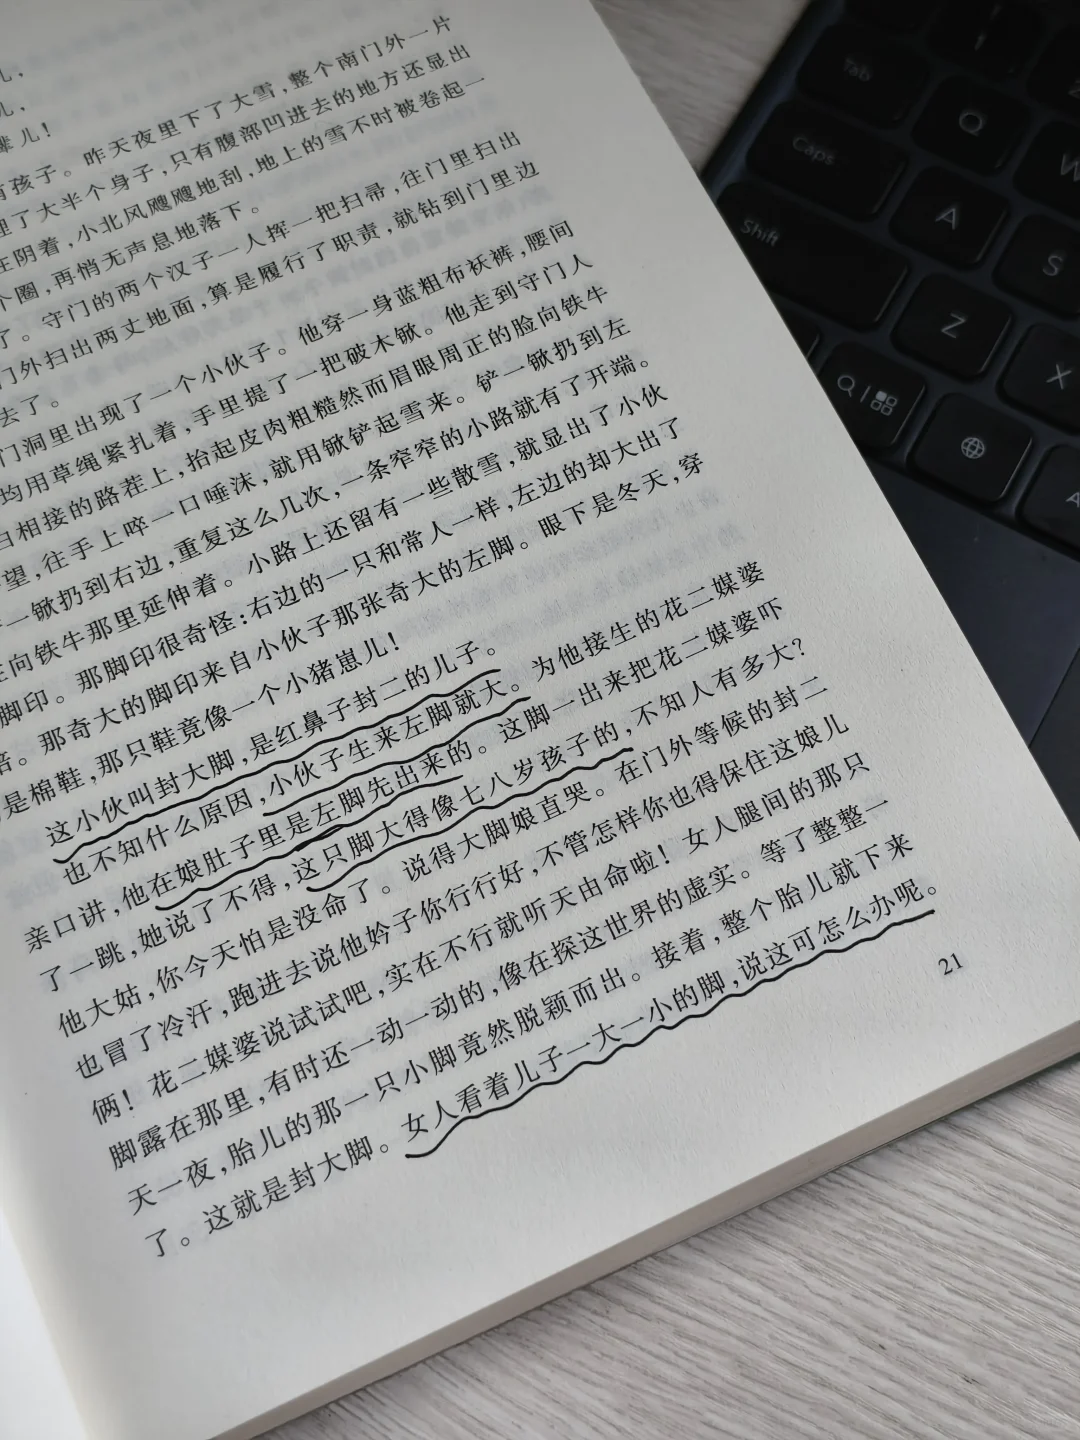 儿，
儿，
儿！
有孩子。昨天夜里下了大雪，整个南门外一片
埋了大半个身子，只有腹部凹进去的地方还显出
在阴着，小北风飕飕地刮，地上的雪不时被卷起一
个圈，再悄无声息地落下。
了。守门的两个汉子一人挥一把扫帚，往门里扫出
门外扫出两丈地面，算是履行了职责，就钻到门里边
去了。
门洞里出现了一个小伙子。他穿一身蓝粗布袄裤，腰间
均用草绳紧扎着，手里提了一把破木锨。他走到守门人
白相接的路茬上，抬起皮肉粗糙然而眉眼周正的脸向铁牛
望，往手上啐一口唾沫，就用锨铲起雪来。铲一锨扔到左
一锨扔到右边，重复这么几次，一条窄窄的小路就有了开端。
向铁牛那里延伸着。小路上还留有一些散雪，就显出了小伙
脚印。那脚印很奇怪：右边的一只和常人一样，左边的却大出了
倍。那奇大的脚印来自小伙子那张奇大的左脚。眼下是冬天，穿
是棉鞋，那只鞋竟像一个小猪崽儿！
这小伙叫封大脚，是红鼻子封二的儿子。
也不知什么原因，小伙子生来左脚就大。为他接生的花二媒婆
亲口讲，他在娘肚子里是左脚先出来的。这脚一出来把花二媒婆吓
了一跳，她说了不得，这只脚大得像七八岁孩子的，不知人有多大？
他大姑，你今天怕是没命了。说得大脚娘直哭。在门外等候的封二
也冒了冷汗，跑进去说他妗子你行行好，不管怎样你也得保住这娘儿
俩！花二媒婆说试试吧，实在不行就听天由命啦！女人腿间的那只
脚露在那里，有时还一动一动的，像在探这世界的虚实。等了整整一
天一夜，胎儿的那一只小脚竟然脱颖而出。接着，整个胎儿就下来
了。这就是封大脚。女人看着儿子一大一小的脚，说这可怎么办呢。
21
Tab
Q
W
Caps
A
S
Shift
Z
X